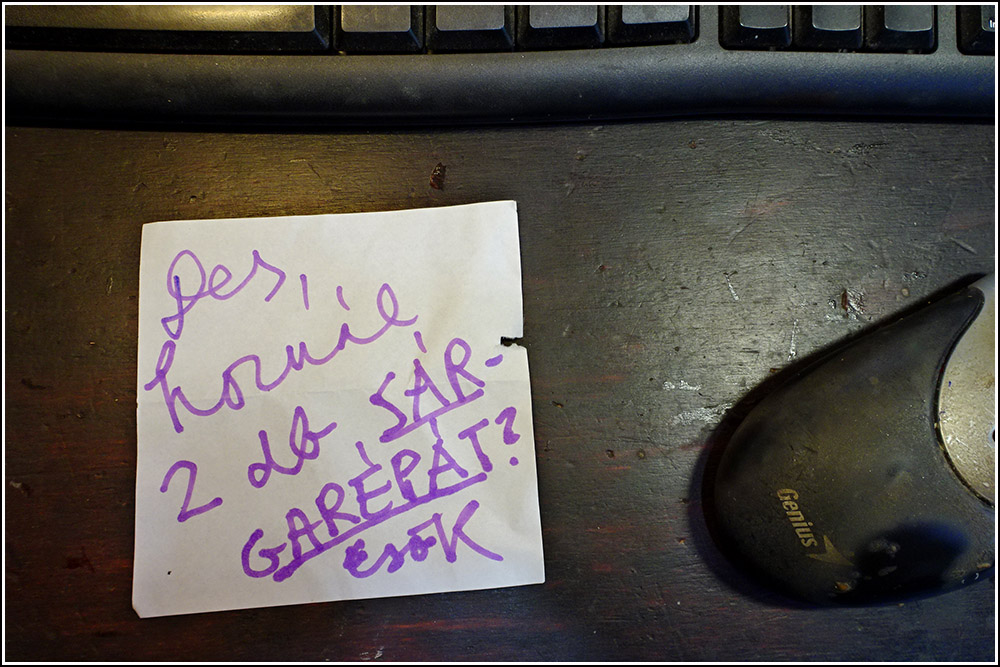 Des,
hoznál
2 db SÁR-
GARÉPÁT?
csók
Genius